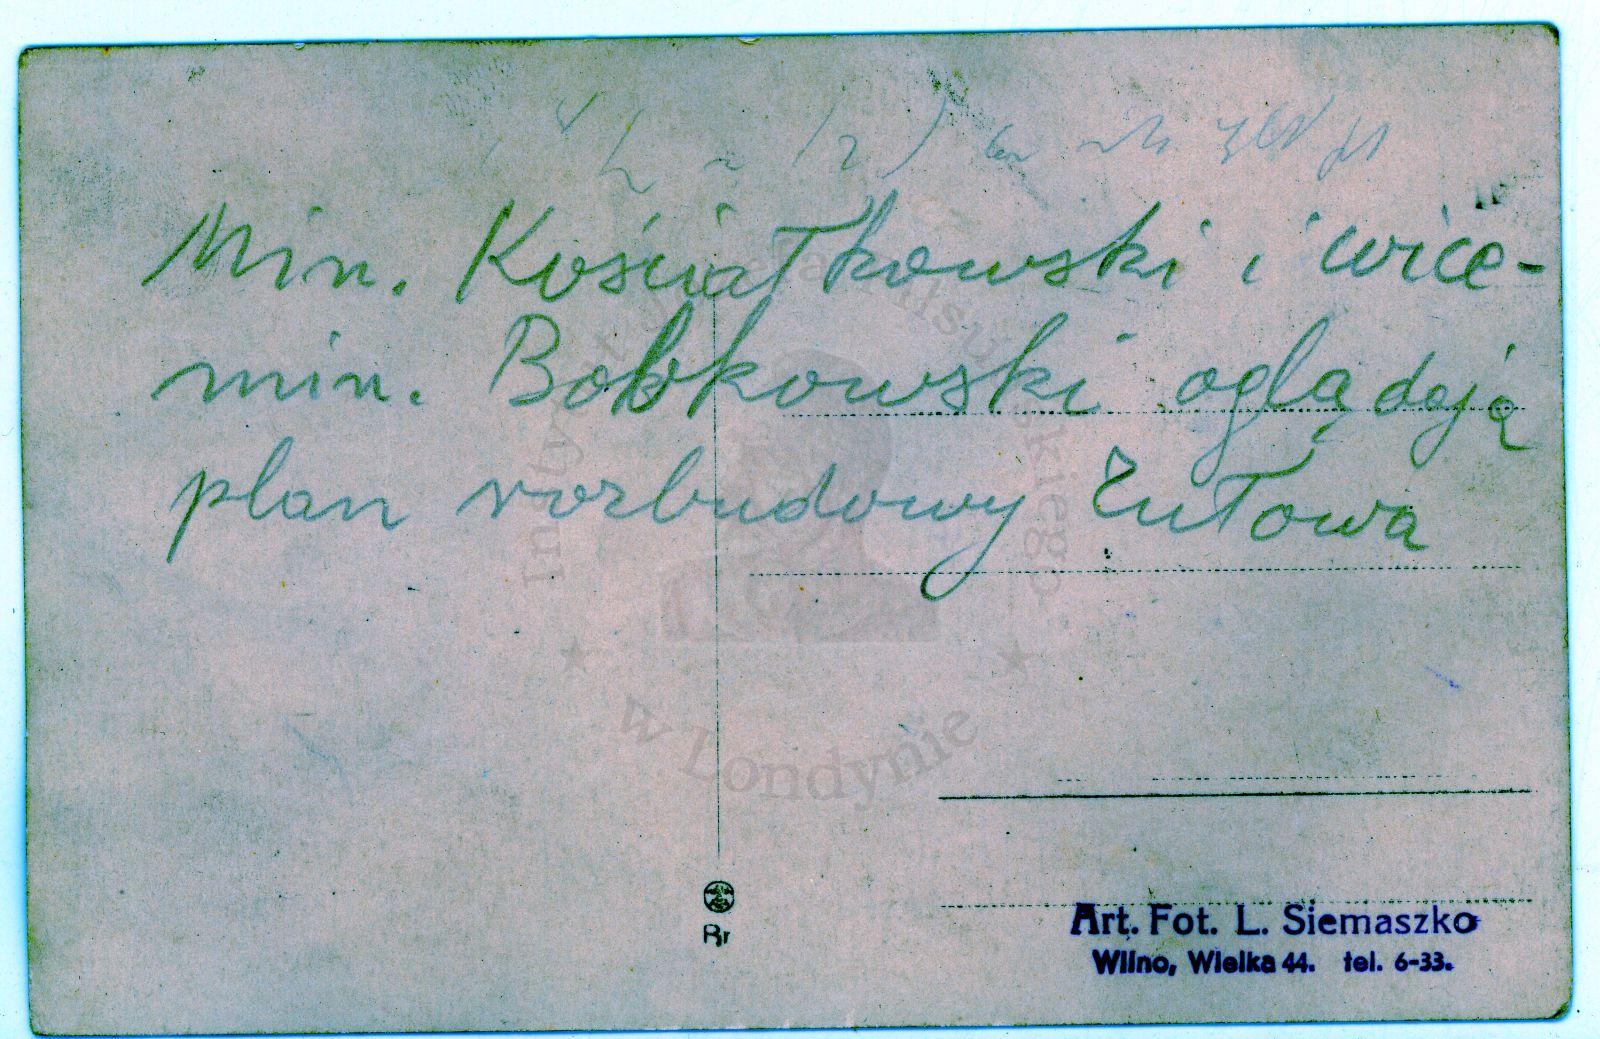 Min. Kościałkowski i wice-
min. Bobkowski oglądają
plan rozbudowy Zułowa
Instytut Józefa Piłsudskiego
w Londynie
Br
Art. Fot. L. Siemaszko
Wilno, Wielka 44. tel. 6-33.